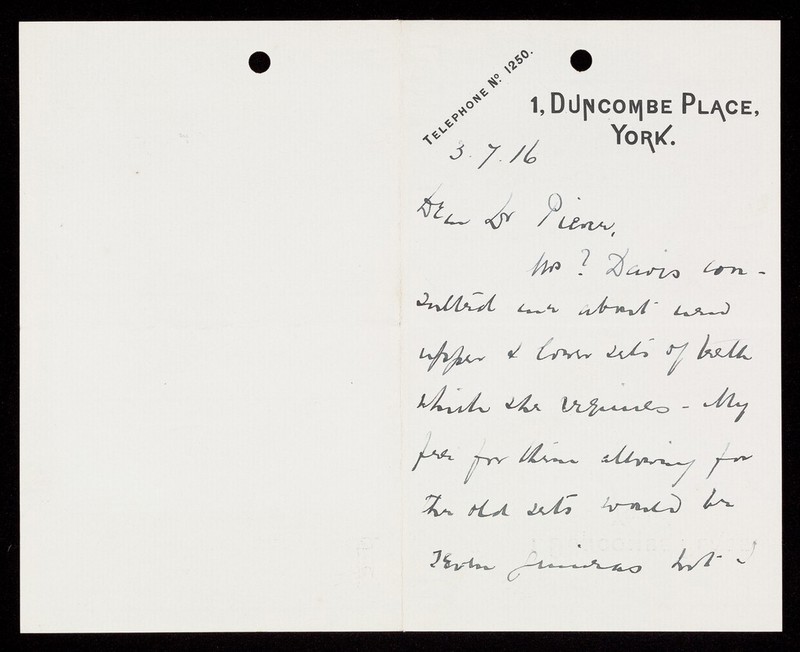 TELEPHONE Nº 1250.
1, DUNCOMBE PLACE,
YORK.
3.7.16
Dear Dr Pierce,
Mrs ? Davis con-
sulted me about new
upper & lower sets of teeth
which she requires - My
fee for them allowing for
the old sets would be
seven guineas but I